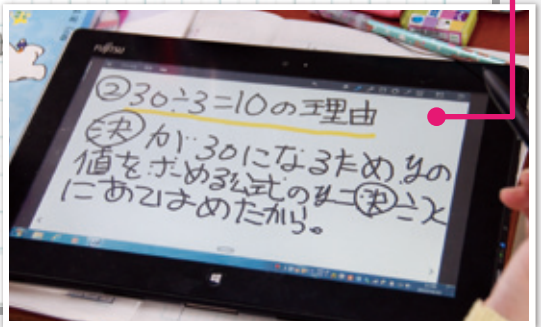 FUJITSU
②30÷3=10の理由
㋷が30になるため、yの
値を求める公式のy=㋷÷x
にあてはめたから。